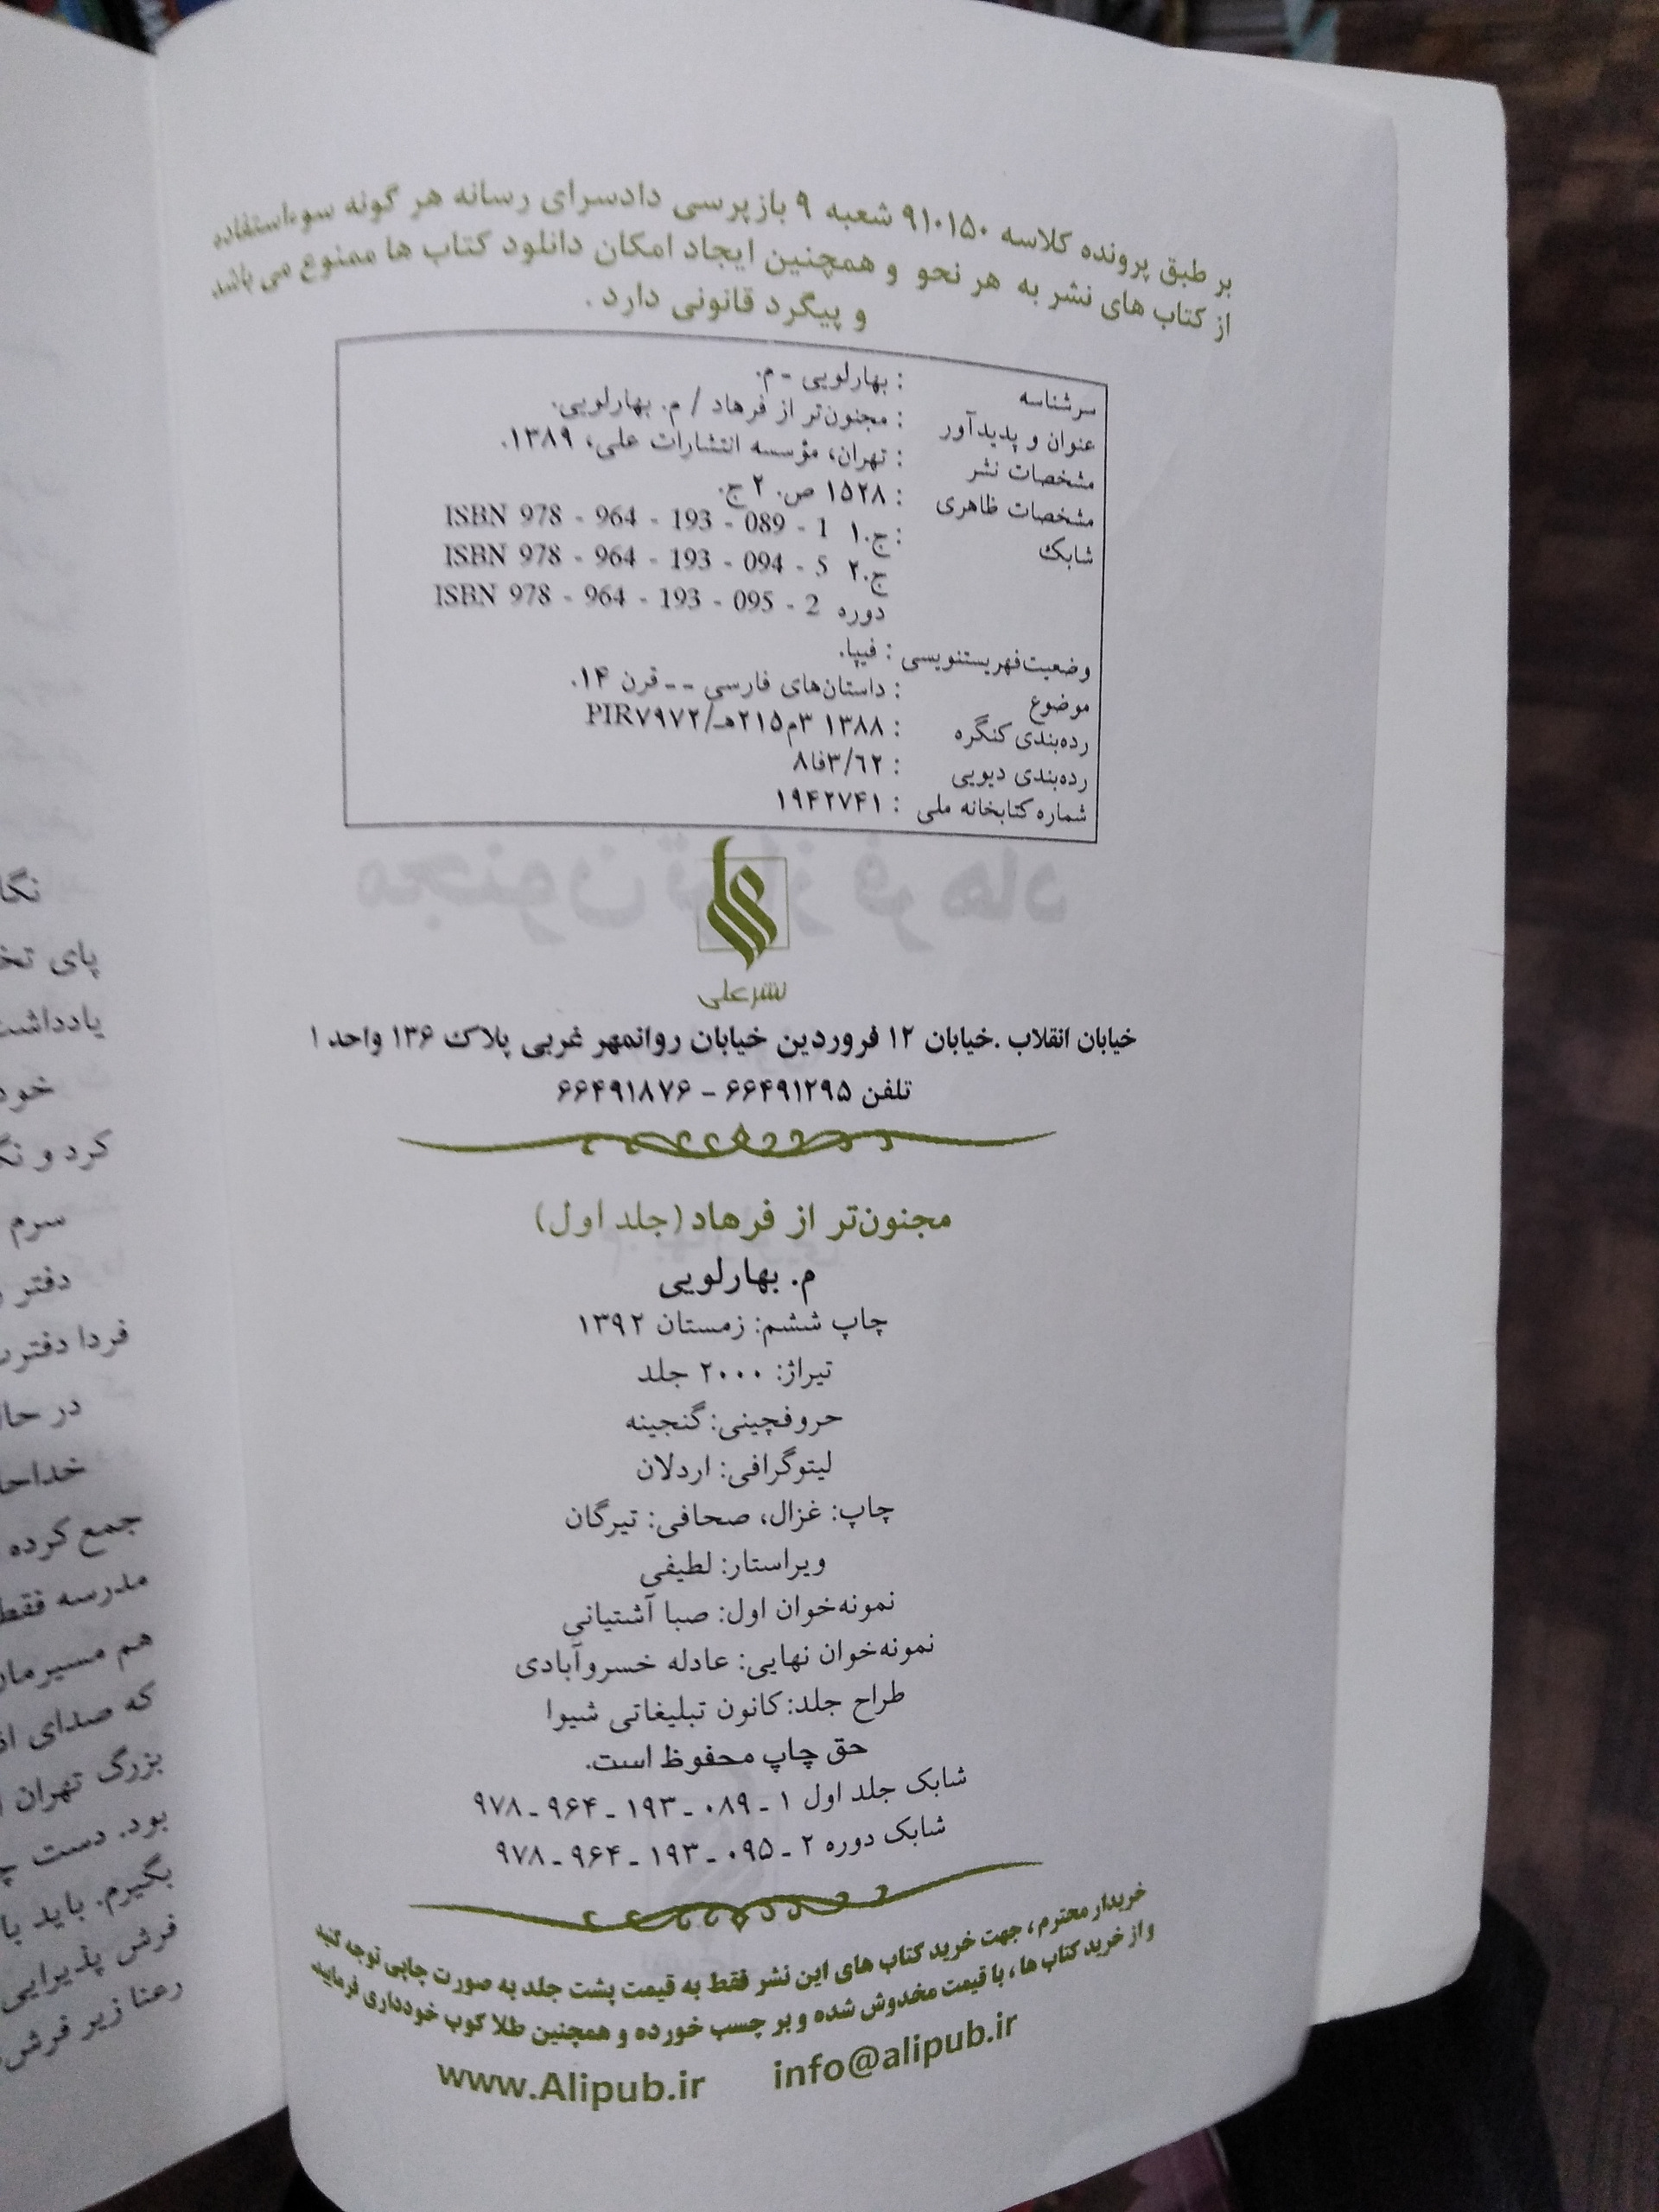 بر طبق پرونده کلاسه ۹۱۰۱۵۰ شعبه ۹ بازپرسی دادسرای رسانه هر گونه سوءاستفاده
از کتاب های نشر به هر نحو و همچنین ایجاد امکان دانلود کتاب ها ممنوع می باشد
و پیگرد قانونی دارد .
سرشناسه : بهارلویی - م.
عنوان و پدیدآور : مجنون‌تر از فرهاد / م. بهارلویی.
مشخصات نشر : تهران، مؤسسه انتشارات علی، ۱۳۸۹.
مشخصات ظاهری : ۱۵۲۸ ص. ۲ ج.
شابک : ج.۱ ISBN 978 - 964 - 193 - 089 - 1
ج.۲ ISBN 978 - 964 - 193 - 094 - 5
دوره ISBN 978 - 964 - 193 - 095 - 2
وضعیت‌فهریستنویسی : فیپا.
موضوع : داستان‌های فارسی -- قرن ۱۴.
رده‌بندی کنگره : ۱۳۸۸ ۳م۲۱۵هـ/PIR۷۹۷۲
رده‌بندی دیویی : ۸فا۳/۶۲
شماره کتابخانه ملی : ۱۹۴۲۷۴۱
نشر علی
خیابان انقلاب .خیابان ۱۲ فروردین خیابان روانمهر غربی پلاک ۱۳۶ واحد ۱
تلفن ۶۶۴۹۱۲۹۵ - ۶۶۴۹۱۸۷۶
مجنون‌تر از فرهاد (جلد اول)
م. بهارلویی
چاپ ششم: زمستان ۱۳۹۲
تیراژ: ۲۰۰۰ جلد
حروفچینی: گنجینه
لیتوگرافی: اردلان
چاپ: غزال، صحافی: تیرگان
ویراستار: لطیفی
نمونه‌خوان اول: صبا آشتیانی
نمونه‌خوان نهایی: عادله خسروآبادی
طراح جلد: کانون تبلیغاتی شیوا
حق چاپ محفوظ است.
شابک جلد اول ۱ - ۰۸۹ - ۱۹۳ - ۹۶۴ - ۹۷۸
شابک دوره ۲ - ۰۹۵ - ۱۹۳ - ۹۶۴ - ۹۷۸
خریدار محترم ، جهت خرید کتاب های این نشر فقط به قیمت پشت جلد به صورت چاپی توجه کنید
و از خرید کتاب ها ، با قیمت مخدوش شده و بر چسب خورده و همچنین طلا کوب خودداری فرمایید.
www.Alipub.ir info@alipub.ir
پای
یادداشت
کرد و
سرم
دفتر
فردا
جمع کرده
مدرسه فقط
که صدای
بزرگ تهران
بود. دست
بگیرم. باید با
فرش پذیرایی
رعنا زیر فرش